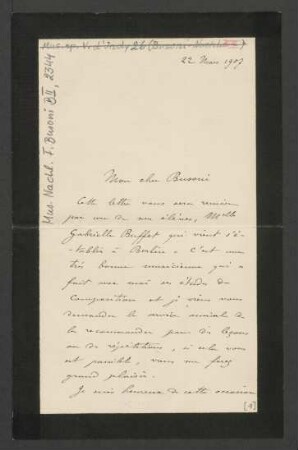 Mus. ep. V. d'Indy 26 (Busoni-Nachl.
Mus. Nachl. F. Busoni B II, 2344
22 Mars 1907
Mon cher Busoni
Cette lettre vous sera remise
par une de mes élèves, Melle
Gabrielle Buffet qui vient s'é-
tablir à Berlin - C'est une
très bonne musicienne qui a
fait avec moi ses études de
composition et je viens vous
demander le service amical de
la recommander pour des leçons
ou des répétitions, si cela vous
est possible, vous me ferez
grand plaisir.
Je suis heureux de cette occasion
[1]